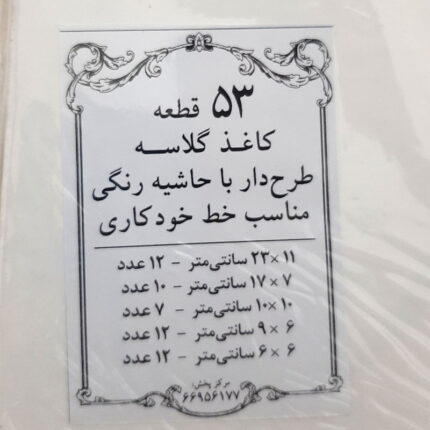 ۵۳ قطعه
کاغذ گلاسه
طرح‌دار با حاشیه رنگی
مناسب خط خودکاری
۱۱ ×۲۳ سانتی‌متر - ۱۲ عدد
۷ ×۱۷ سانتی‌متر - ۱۰ عدد
۱۰×۱۰ سانتی‌متر - ۷ عدد
۶ ×۹ سانتی‌متر - ۱۲ عدد
۶ ×۶ سانتی‌متر - ۱۲ عدد
مرکز پخش:
۶۶۹۵۶۱۷۷